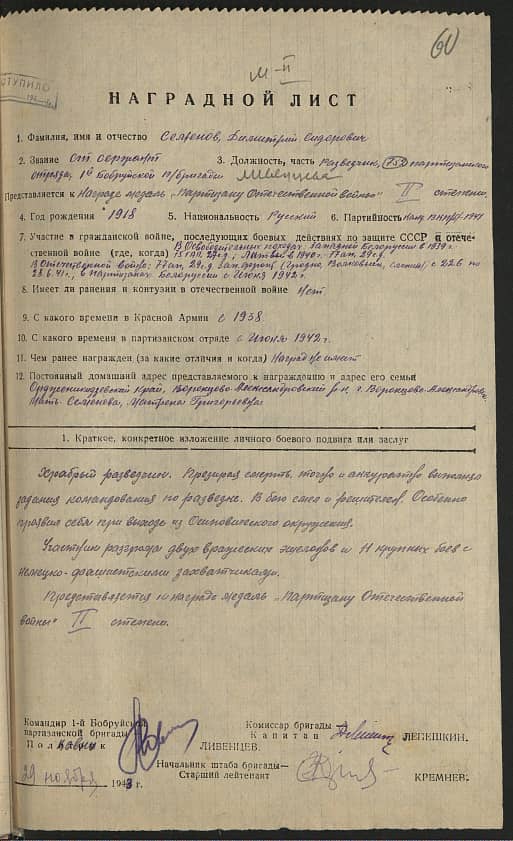 60
М-II
СТУПИЛО
НАГРАДНОЙ ЛИСТ
1. Фамилия, имя и отчество Семенов, Димитрий Сидорович
2. Звание Ст. сержант 3. Должность, часть Разведчик, 752 партизанского
отряда, 1й Бобруйской п/бригады Ливенцева
Представляется к Награде медаль „Партизану Отечественной войны" II степени.
4. Год рождения 1918 5. Национальность Русский 6. Партийность
7. Участие в гражданской войне, последующих боевых действиях по защите СССР и отече-
ственной войне (где, когда) В Освободительных походах Западной Белоруссии в 1939 г.
29 с.д.; Литвы в 1940 г. 29 с.д.
В Отечественной войне: 29 с.д. Зап. фронт (Гродно, Волковыск, ) с 22.6 по
28.6.41 г., в партизанах Белоруссии с Июня 1942 г.
8. Имеет ли ранения и контузии в отечественной войне Нет
9. С какого времени в Красной Армии с 1938.
10. С какого времени в партизанском отряде с Июня 1942 г.
11. Чем ранее награжден (за какие отличия и когда) Наград не имеет
12. Постоянный домашний адрес представляемого к награждению и адрес его семьи
Орджоникидзевский Край, Воронцово-Александровский р-н, с. Воронцово-Александровка
Мать: Семенова, Матрена Григорьевна
1. Краткое, конкретное изложение личного боевого подвига или заслуг
Храбрый разведчик. Презирая смерть, точно и аккуратно выполнял
задания командования по разведке. В бою смел и решителен. Особенно
проявил себя при выходе из Осиповического окружения.
Участник разгрома двух вражеских эшелонов и 11 крупных боев с
немецко-фашистскими захватчиками.
Представляется к награде медаль „Партизану Отечественной
войны" II степени.
Командир 1-й Бобруйской
партизанской бригады
Полковник ЛИВЕНЦЕВ.
Комиссар бригады—
Капитан ЛЕПЕШКИН.
Начальник штаба бригады—
Старший лейтенант КРЕМНЕВ.
29 ноября 1943 г.